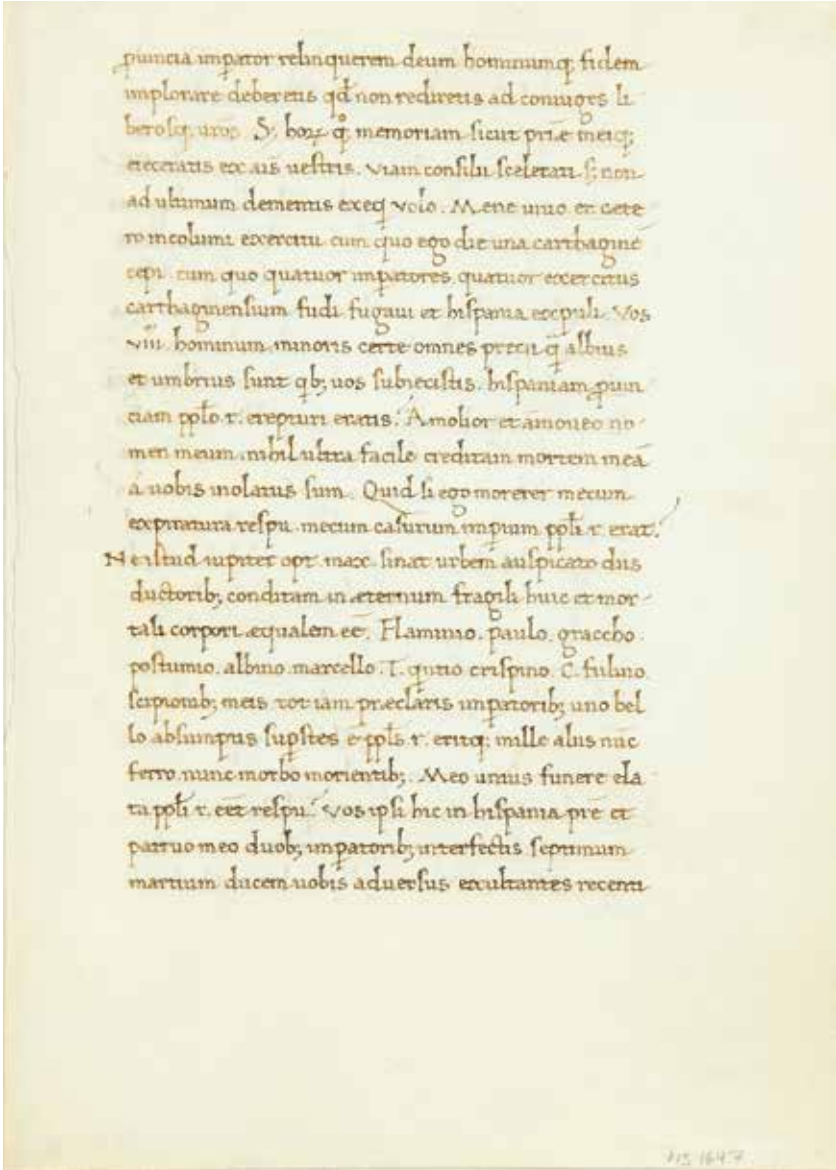 ꝓuincia imꝑator relinquerem deum hominumq; fidem
implorare deberetis qđ non rediretis ad coniuges li
berosq; uros̄. S; hoꝝ q̊q; memoriam sicut p̄riæ meiq;
eieceratis ex aīs uestris. viam consilii scelerati s; non
ad ultimum dementis exeq̇ volo. Mene uiuo et cete
ro incolumi exercitu cum quo ego die una carthaginē
cepi. cum quo quatuor imꝑatores. quatuor exercitus
carthaginensium fudi fugaui et hispania expuli. Vos
viii. hominum. minoris certe omnes precii q̄ albius
et umbrius sunt qb; uos subiecistis. hispaniam ꝓuin
ciam pplo. r. erepturi eratis? Amolior et amoueo no
men meum. nihil ultra facile creditam mortem meā
a uobis uiolatus sum. Quid si ego morerer mecum
expiratura respu. mecum casurum imꝑium ppłi r. erat?
Ne istud iupiter opt max. sinat urbem auspicato diis
ductorib; conditam in æternum fragili huic et mor-
tali corpori æqualem eē. Flaminio. paulo. graccho.
postumio. albino. marcello. T. quitio crispino. C. fuluio.
scipionib; meis tot iam præclaris imꝑatorib; uno bel
lo absumptis suꝑstes ē ppłs. r. eritq; mille aliis nūc
ferro. nunc morbo morientib;. Meo unius funere ela
ta ppłi r. eēt respu? Vos ipsi hic in hispania pr̄e et
patruo meo duob; imꝑatorib; interfectis septimum
martium ducem uobis aduersus exultantes recenti